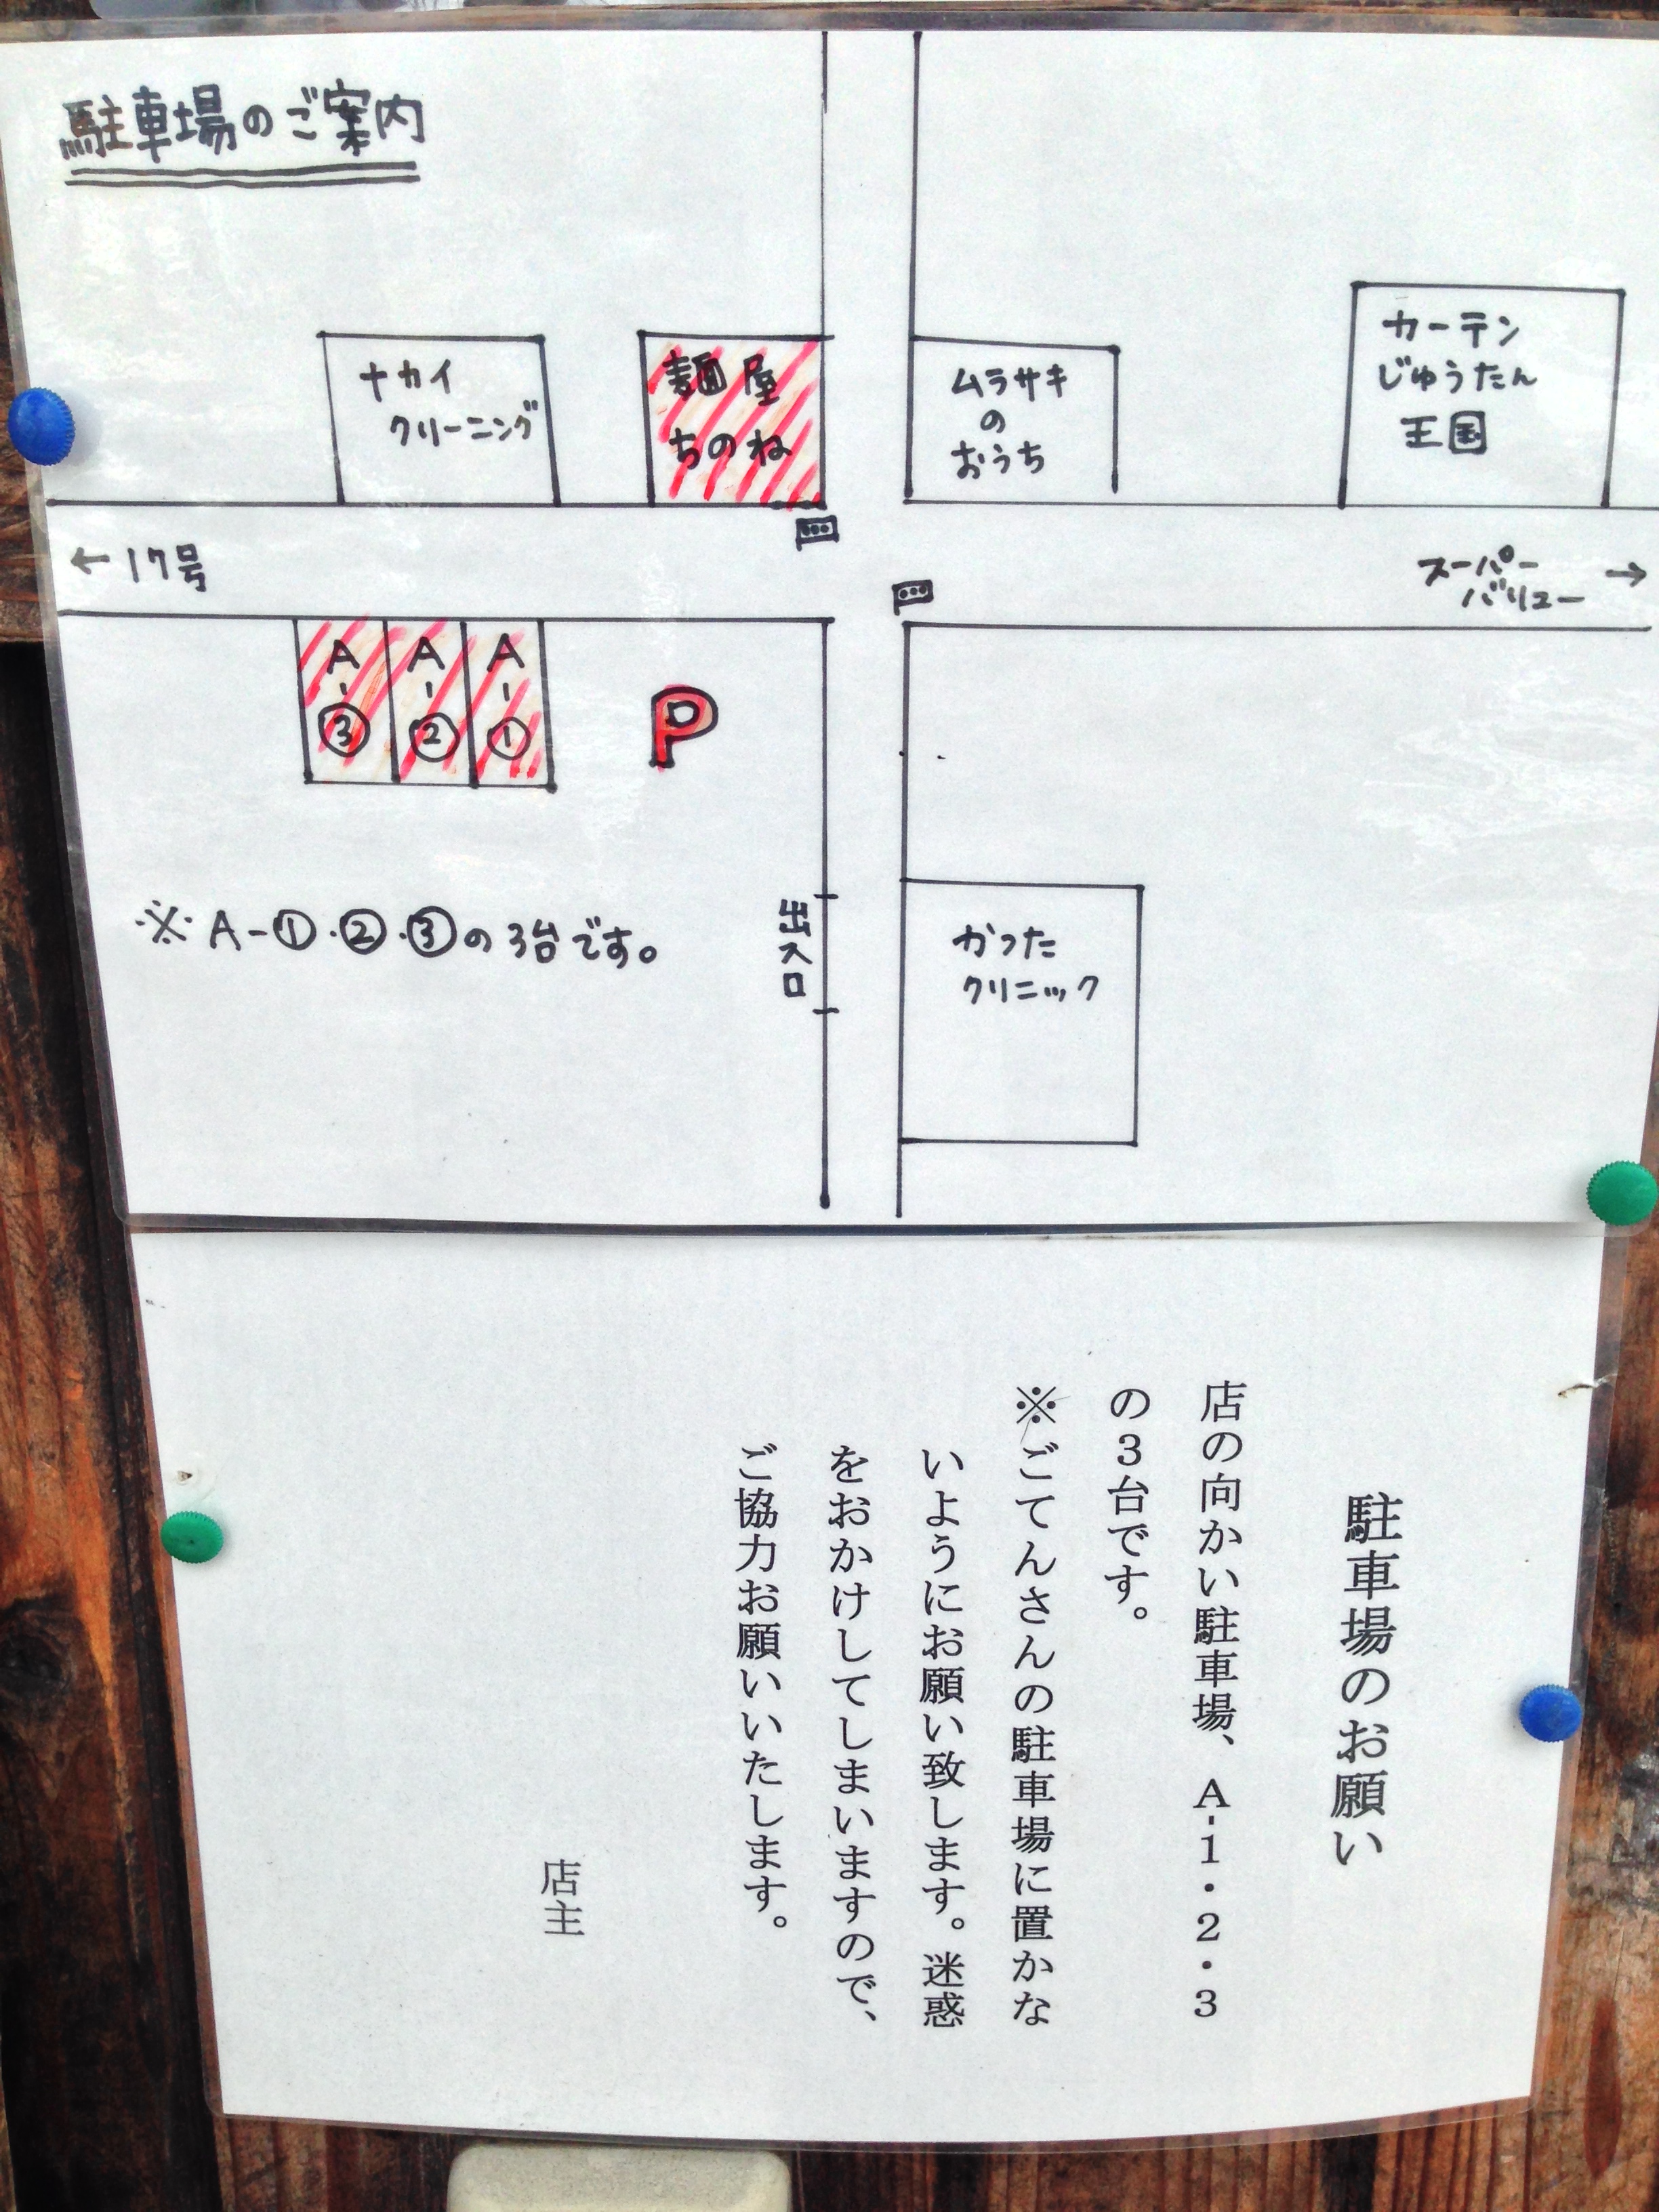 駐車場のご案内
ナカイ
クリーニング
麺屋
ちのね
ムラサキ
の
おうち
カーテン
じゅうたん
王国
←17号
スーパー
バリュー →
A-③
A-②
A-①
P
※A-①・②・③の3台です。
出入口
かつた
クリニック
駐車場のお願い
店の向かい駐車場、A-1・2・3
の3台です。
※ごてんさんの駐車場に置かな
いようにお願い致します。迷惑
をおかけしてしまいますので、
ご協力お願いいたします。
店主